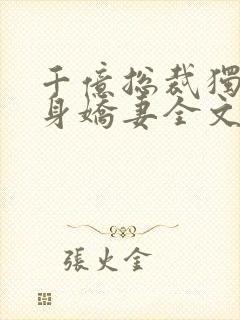 千億總裁獨
身嬌妻全文
張火金